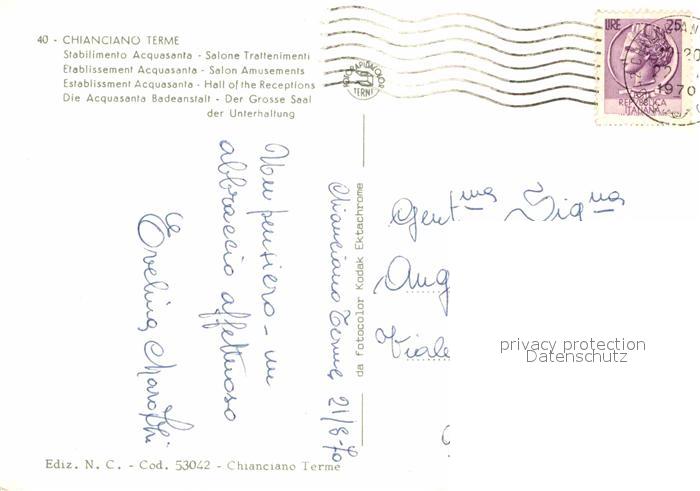 40 - CHIANCIANO TERME
Stabilimento Acquasanta - Salone Trattenimenti
Etablissement Acquasanta - Salon Amusements
Establissment Acquasanta - Hall of the Receptions
Die Acquasanta Badeanstalt - Der Grosse Saal
der Unterhaltung
FOTORAPIDACOLOR
TERNI
LIRE 25
REPUBBLICA
ITALIANA
1970
Chianciano Terme, 21/8-70
Un pensiero - un
abbraccio affettuoso
Evelina
da fotocolor Kodak Ektachrome
Gent.ma Sig.na
Ang
Viale
privacy protection
Datenschutz
Ediz. N. C. - Cod. 53042 - Chianciano Terme